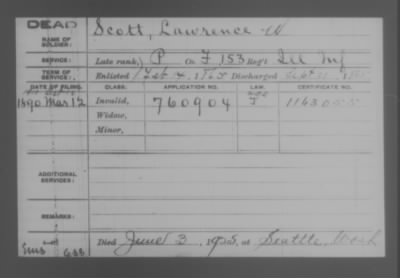 DEAD
NAME OF SOLDIER: Scott, Lawrence W
SERVICE: Late rank, P Co. F, 153 Reg't Ill Inf
TERM OF SERVICE: Enlisted Feb 1865 Discharged Sept 21, 1865
DATE OF FILING. CLASS. APPLICATION NO. LAW. CERTIFICATE NO.
1890 Mar 12 Invalid, 760904 J 1163055
Widow,
Minor,
ADDITIONAL SERVICES:
REMARKS:
Died June 3, 1925, at Seattle, Wash